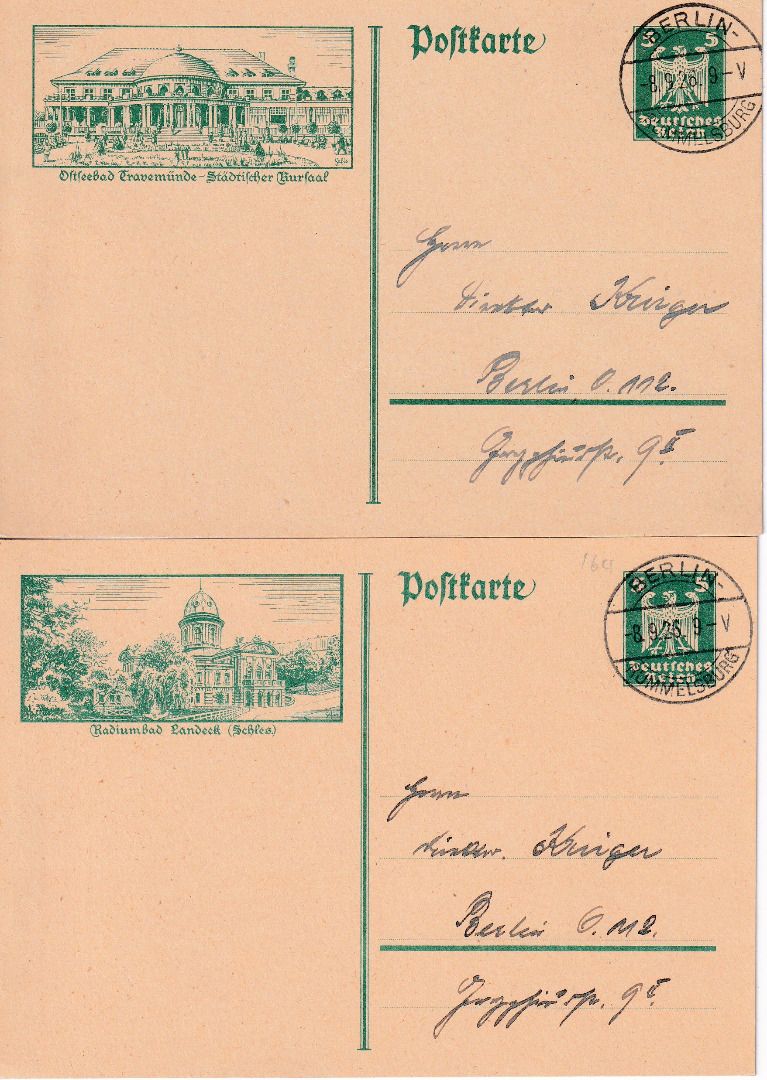 Postkarte
5
Deutsches
Reich
BERLIN-
-8.9.26. 9-V
RUMMELSBURG
Ostseebad Travemünde-Städtischer Kursaal
Herrn
Direktor Krüger
Berlin O. 112.
9 II
Postkarte
5
Deutsches
Reich
BERLIN-
-8.9.26. 9-V
RUMMELSBURG
Radiumbad Landeck (Schles.)
Herrn
Direktor Krüger
Berlin O. 112.
9 II